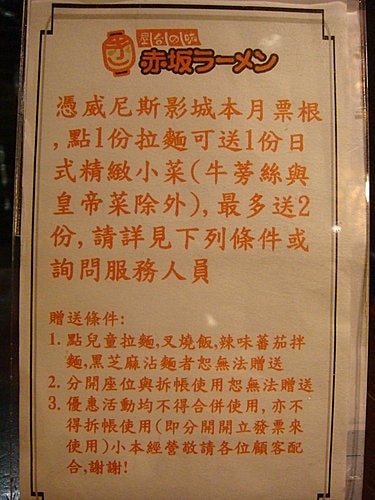 屋台の味
赤坂ラーメン
憑威尼斯影城本月票根
,點1份拉麵可送1份日
式精緻小菜(牛蒡絲與
皇帝菜除外),最多送2
份,請詳見下列條件或
詢問服務人員
贈送條件:
1. 點兒童拉麵,叉燒飯,辣味蕃茄拌
麵,黑芝麻沾麵者恕無法贈送
2. 分開座位與拆帳使用恕無法贈送
3. 優惠活動均不得合併使用, 亦不
得拆帳使用(即分開開立發票來
使用)小本經營敬請各位顧客配
合,謝謝!